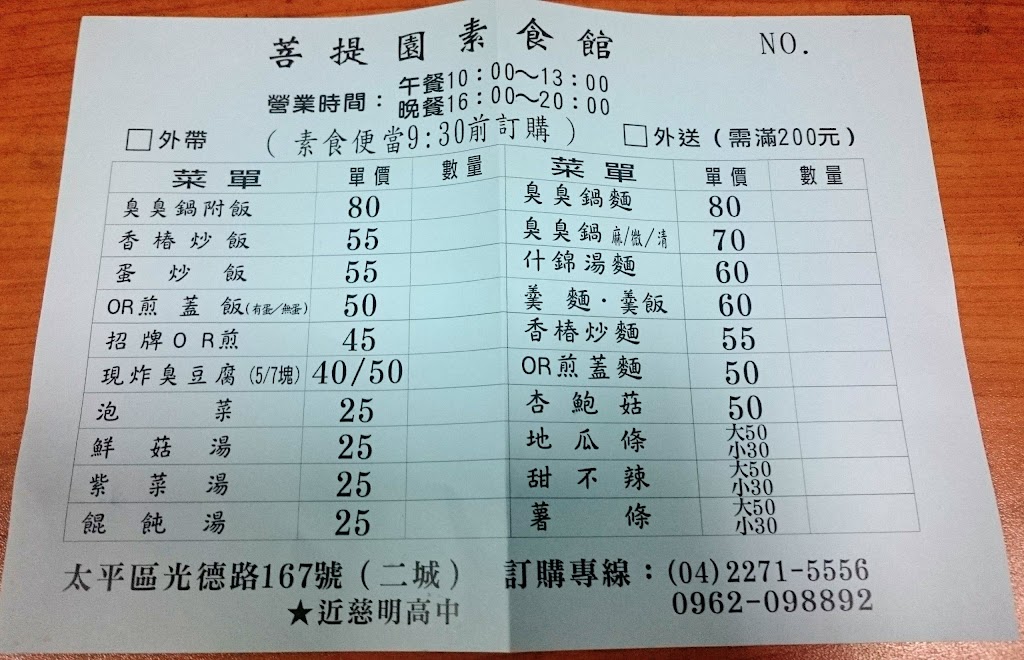 菩提園素食館 NO.
營業時間：午餐10：00～13：00
晚餐16：00～20：00
□外帶 (素食便當9:30前訂購) □外送(需滿200元)
菜單 單價 數量 菜單 單價 數量
臭臭鍋附飯 80 臭臭鍋麵 80
香椿炒飯 55 臭臭鍋 麻/微/清 70
蛋炒飯 55 什錦湯麵 60
OR煎蓋飯(有蛋/無蛋) 50 羹麵·羹飯 60
招牌OR煎 45 香椿炒麵 55
現炸臭豆腐(5/7塊) 40/50 OR煎蓋麵 50
泡菜 25 杏鮑菇 50
鮮菇湯 25 地瓜條 大50 小30
紫菜湯 25 甜不辣 大50 小30
餛飩湯 25 薯條 大50 小30
太平區光德路167號(二城) 訂購專線：(04)2271-5556
★近慈明高中 0962-098892